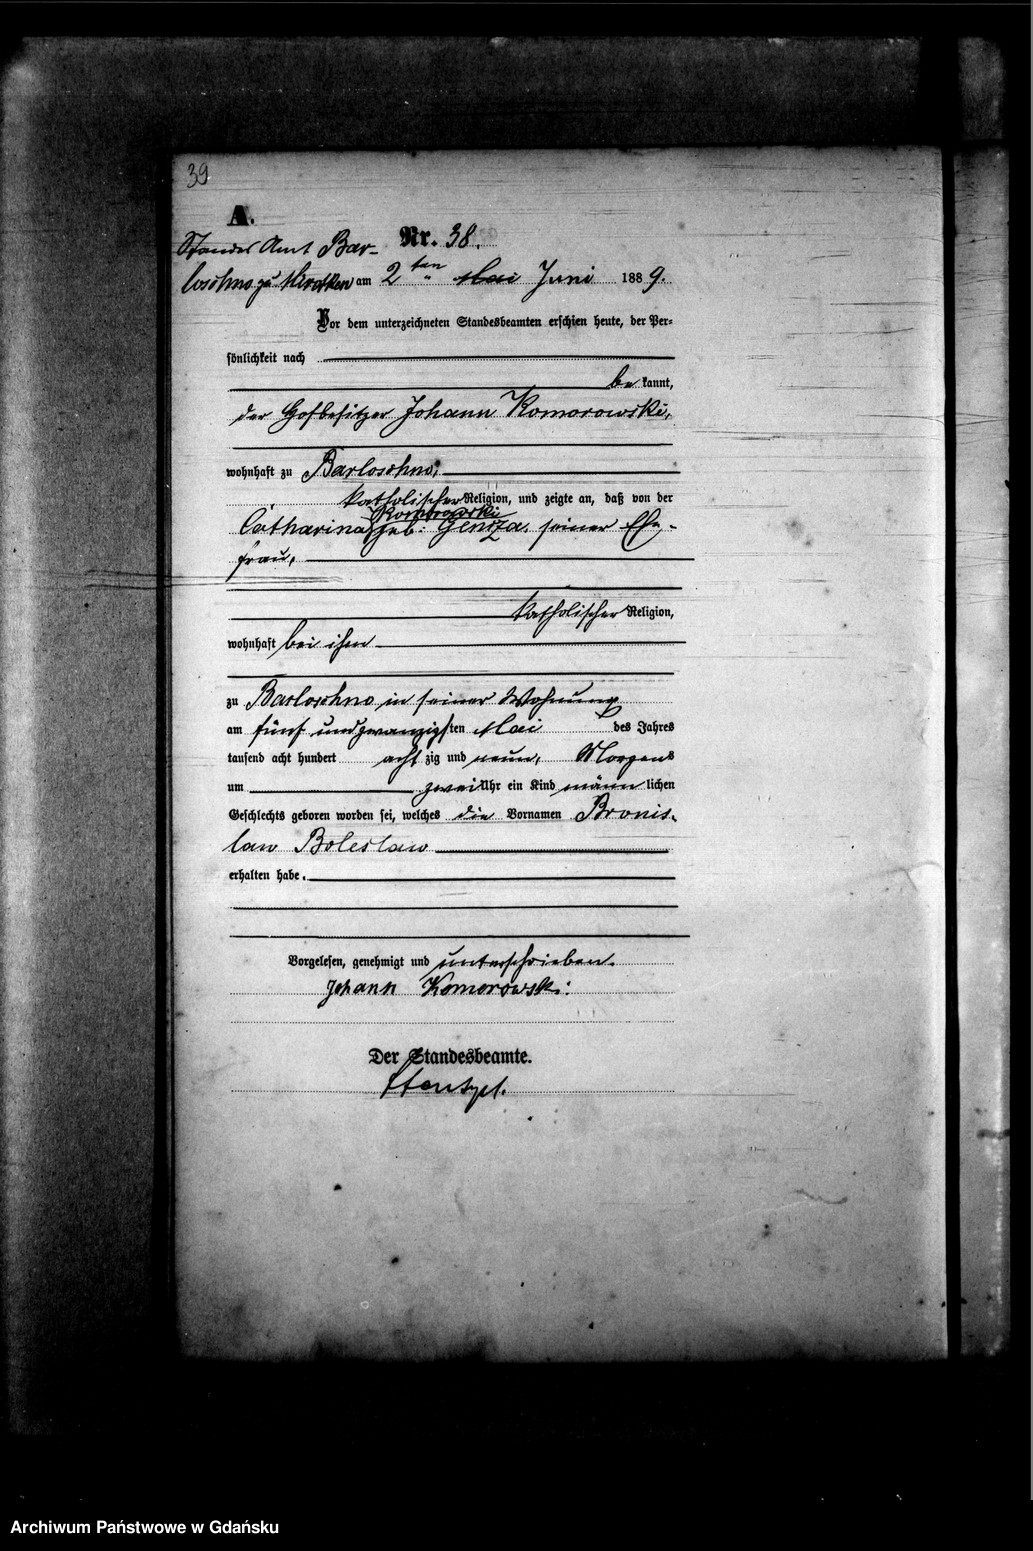 39
A.
Standes Amt Bar- Nr. 38.
loschno zu am 2ten Mai Juni 1889.
Vor dem unterzeichneten Standesbeamten erschien heute, der Per-
sönlichkeit nach
be kannt,
der Hofbesitzer Johann Komorowski,
wohnhaft zu Barloschno,
katholischer Religion, und zeigte an, daß von der
Komorowski
Catharina geb: Gencza, seiner Ehe-
frau,
katholischer Religion,
wohnhaft bei ihm
zu Barloschno in seiner Wohnung
am fünf und zwanzigsten Mai des Jahres
tausend acht hundert acht zig und neun, Morgens
um zwei Uhr ein Kind männ lichen
Geschlechts geboren worden sei, welches die Vornamen Bronis-
law Boleslaw
erhalten habe.
Vorgelesen, genehmigt und unterschrieben.
Johann Komorowski
Der Standesbeamte.
Archiwum Państwowe w Gdańsku